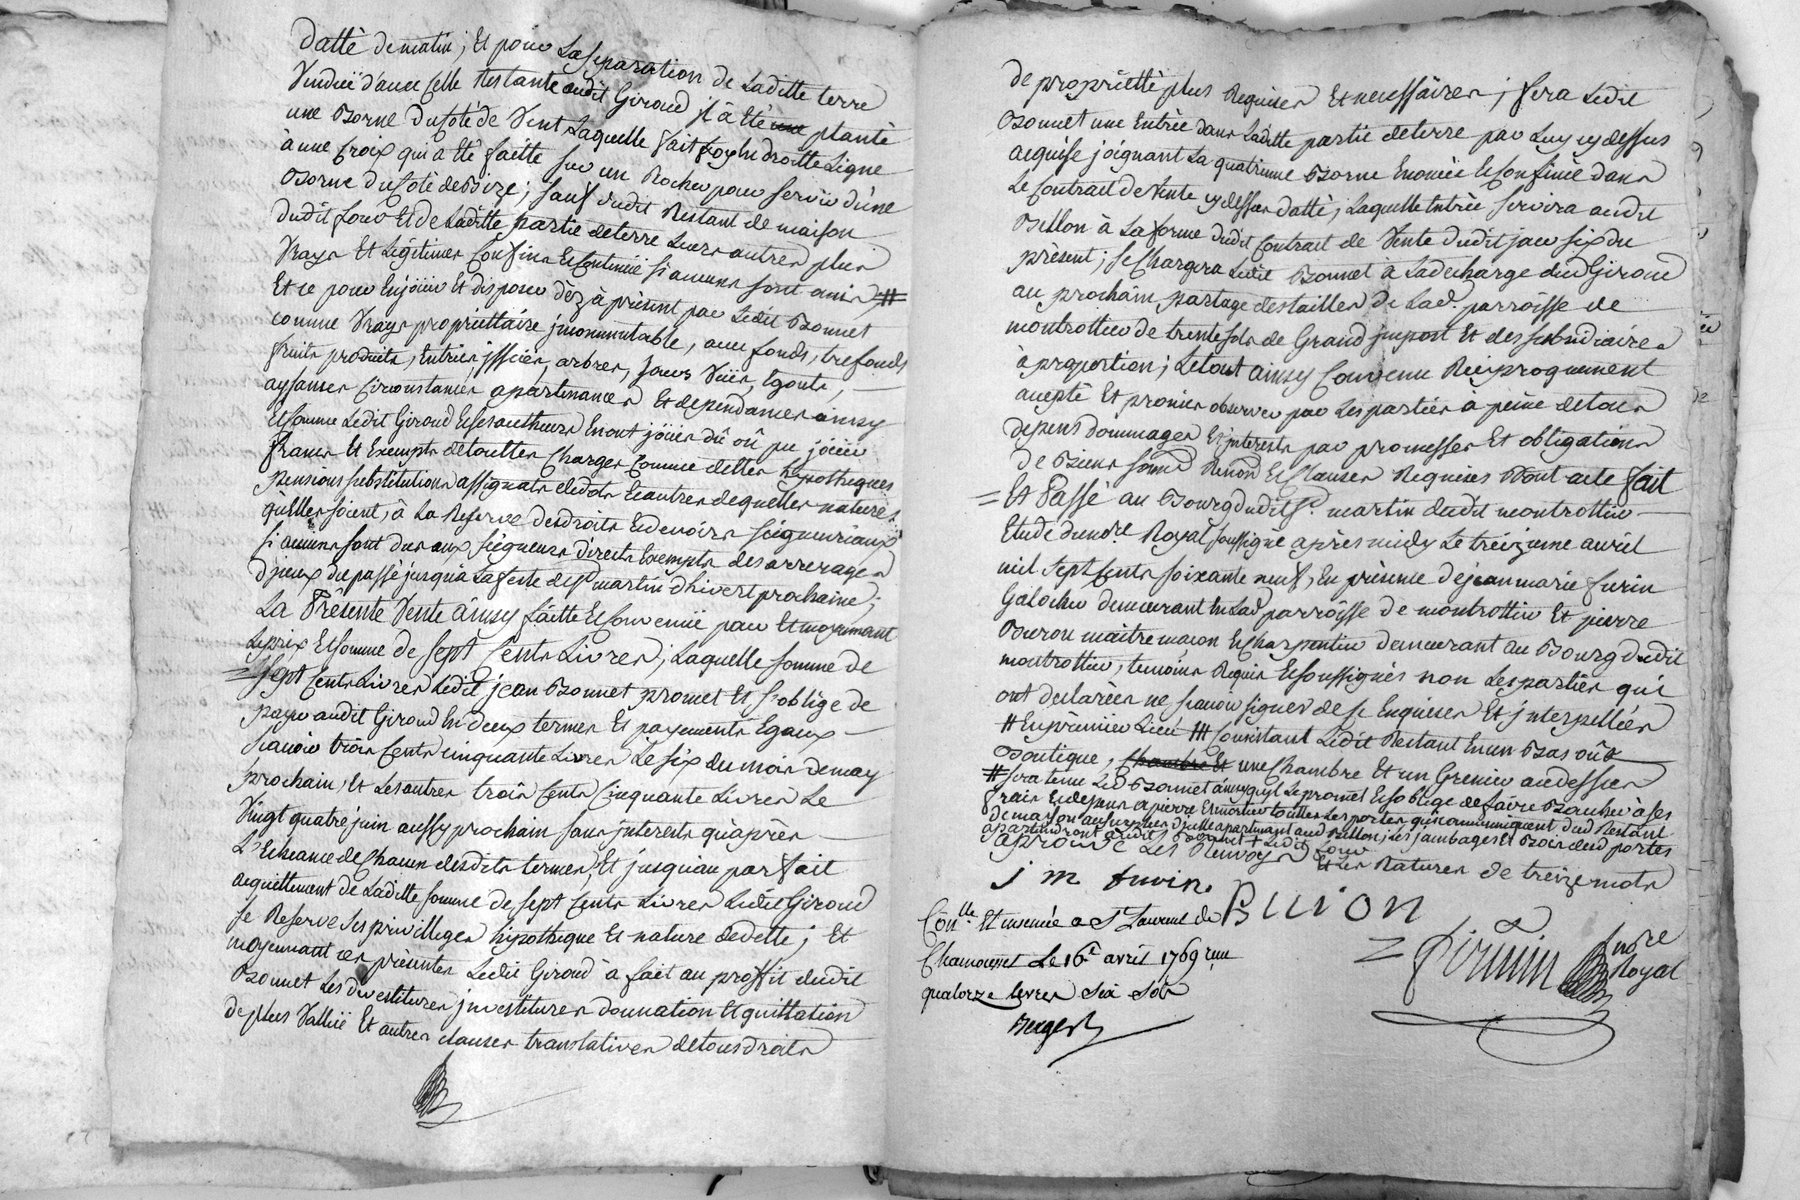 datté de matin ; Et pour La Separation de Laditte terre
Venduë d'avec Celle Restante audit Giroud il à été planté
une Borne du Coté de Vent Laquelle fait foy En droitte Ligne
à une Croix qui a été faitte sur un Rocher pour servir d'une
Borne du Coté de Bize ; sauf dudit Restant de maison
dudit four Et de Laditte partie de terre Leurs autres plus
Vrays Et Légitimes Confins Et Contenüe si aucuns sont omis #
Et ce pour En joüir Et disposer dèz à présent par Ledit Bonnet
comme Vrays propriettaire jncommutable, avec fonds, trefonds
fruits produits, Entrées, jssües, arbres, jours Vües, Egouts,
aysances Circonstances apartenances Et dependances ainsy
Et Comme Ledit Giroud Et ses autheurs En ont joüis dû où pu joüir
francs Et Exempts de touttes Charges Comme dettes hypotheques
pensions substitutions assignats de dots Et autres de quelles natures
qu'Elles soient, à La Reserve des droits Et devoirs seigneuriaux
si aucuns sont dus aux seigneurs directs Exempts des arrerages
d'jceux du passé jusqu'à La feste de St martin d'hivert prochaine ;
La Présente Vente ainsy faitte Et Convenüe pour Et moyennant
Le prix Et Somme de sept Cents Livres ; Laquelle somme de
sept Cents Livres Ledit jean Bonnet promet Et s'oblige de
payer audit Giroud En deux termes Et payements Egaux
sçavoir trois Cents cinquante Livres Le six du mois de may
prochain, Et Les autres trois Cents Cinquante Livres Le
Vingt quatre juin aussy prochain sans jnterests qu'après
L'Echeance de Chacun desdits termes, Et jusqu'au parfait
acquittement de Laditte somme de sept Cents Livres Ledit Giroud
se Reserve ses privilleges hipotheque Et nature de dette ; Et
moyennant ces présentes Ledit Giroud à fait au proffit dudit
Bonnet Les divestitures jnvestitures donnation Et quittation
de plus Vallüe Et autres clauses translatives de tous droits
de propriètté plus Requises Et necessaires ; sera Ledit
Bonnet une Entrée dans Laditte partie de terre par Luy cy dessus
acquise joignant La quatrieme Borne Enoncée Et Confinée dans
Le Contrait de Vente cy dessus datté ; Laquelle Entrée servira audit
Billon à La forme dudit Contrait de Vente dudit jour six du
présent ; se Chargera Ledit Bonnet à La decharge dud Giroud
au prochain partage des tailles de Lad. parroisse de
montrottier de trente sols de Grand jmpost Et des subsidiaires
à proportion ; Le tout ainsy Convenu Reciproquement
accepté Et promis observer par Les parties à peine de tous
depens dommages Et jnterests par promesses Et obligations
de Biens soumd Renond Et Clauses Requises Dont acte fait
Et Passé au Bourg dudit St martin dudit montrottier
Etude du nore Royal soussigné après midy Le treizieme avril
mil sept Cents soixante neuf, En présence de jean marie furin
Galocher demeurant En Lad parroisse de montrottier Et pierre
Buron maitre maçon Et Charpentier demeurant au Bourg dudit
montrottier, temoins Requis Et soussignés non Les parties qui
ont declarées ne sçavoir signer de ce Enquises Et jnterpellées
# En prémier Lieu ## Consistant Ledit Restant En un Bas où
Boutique, Chambre Et une Chambre Et un Grenier au dessus
# sera tenu Led Bonnet ainsy qu'jl Le promet Et s'oblige de faire Boucher à ses
frais Et depens à pierre Et mortier touttes Les portes qui communiquent dud Restant
de maison apartenant aud Billon ; Les jambages Et Bois desd portes
apartiendront audit Bonnet + Ledit four
aprouvé Les Renvoys Et Les Ratures de treize mots
j m furin.
BURON
Conlle Et insinué a St Laurent de
Chamousset Le 16e avril 1769 reçu
quatorze Livres six sols
Berger
Pirmin nore Royal